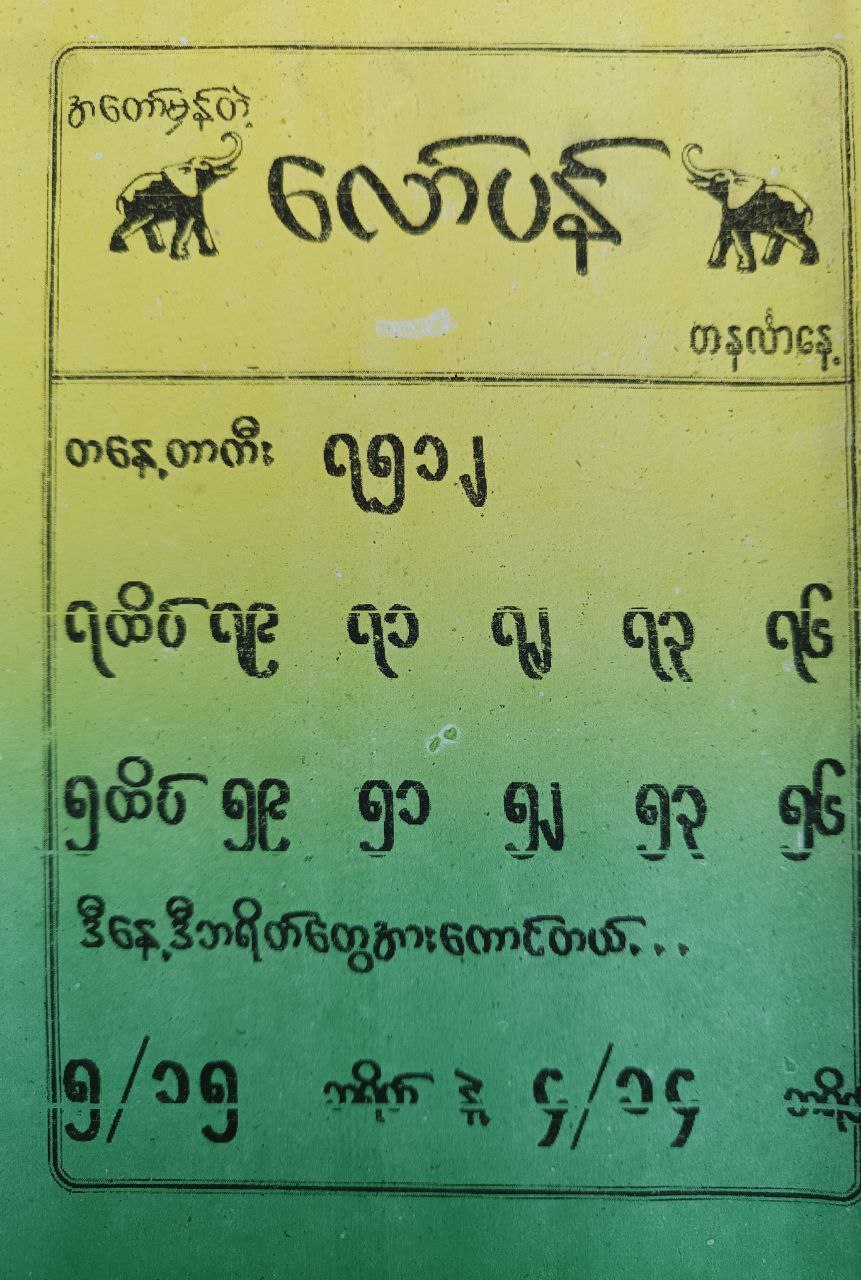 အတော်မှန်တဲ့
လော်ပန်
တနင်္လာနေ့
တနေ့တာကီး ၇၅၁၂
၇ထိပ် ၇၉ ၇၁ ၇၂ ၇၃ ၇၆
၅ထိပ် ၅၉ ၅၁ ၅၂ ၅၃ ၅၆
ဒီနေ့ဒီဘရိတ်တွေအားကောင်တယ်...
၅/၁၅ ဘရိတ် နဲ့ ၄/၁၄